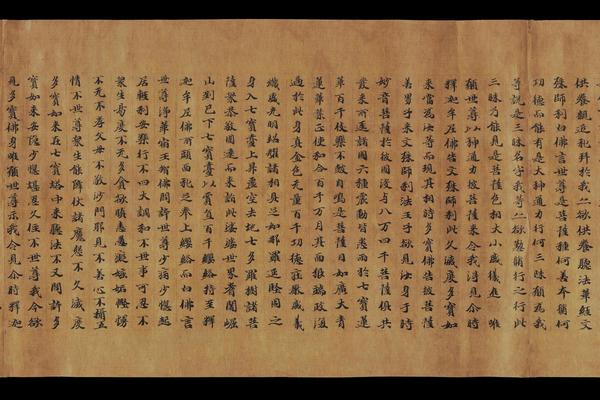 供養親近礼拜於我亦欲供養聽法華經文
殊師利白佛言世尊是菩薩種何善本脩何
功德而能有是大神通力行何三昧願為我
等說是三昧名字我等亦欲勤脩行之行此
三昧乃能見是菩薩色相大小威儀進止唯
願世尊以神通力彼菩薩來令我得見尒時
釋迦牟尼佛告文殊師利此久滅度多寶如
來當為汝等而現其相時多寶佛告彼菩薩
善男子來文殊師利法王子欲見汝身于時
妙音菩薩於彼國沒与八万四千菩薩俱共
發來所逕諸國六種震動皆悉雨於七寶蓮
華百千伎樂不鼓自鳴是菩薩目如廣大青
蓮華葉正使和合百千万月其面貌端政復
過於此身真金色无量百千功德莊嚴威儀
熾盛光明照曜諸相具足如那羅延堅固之
身入七寶臺上昇虛空去地七多羅樹諸菩
薩眾恭敬圍遶而來詣此娑婆世界耆闍崛
山到已下七寶臺以賈直百千纓絡持至釋
迦牟尼佛所頭面礼足奉上纓絡而白佛言
世尊淨華宿王智佛問訊世尊少病少惱起
居輕利安樂行不四大調和不世事可忍不
衆生易度不无多貪欲瞋恚愚癡嫉妬慳慢
不无不孝父母不敬沙門耶見不善心不攝五
情不世尊衆生能降伏諸魔怨不久滅度
多寶如來在七寶塔中來聽法不又問訊多
寶如來安隱少惱堪忍久住不世尊我今欲
見多寶佛身唯願世尊示我令見尒時釋迦